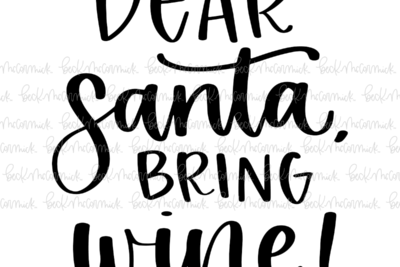 DEAR
Santa,
BRING
wine!